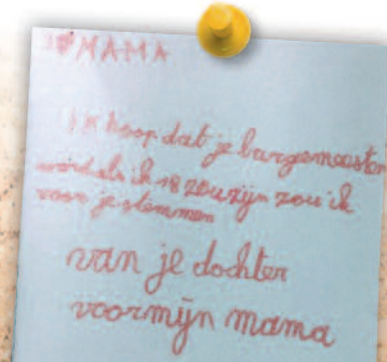 I ♥ MAMA
ik hoop dat je burgemeester
word als ik 18 zou zijn zou ik
voor je stemmen
van je dochter
voor mijn mama